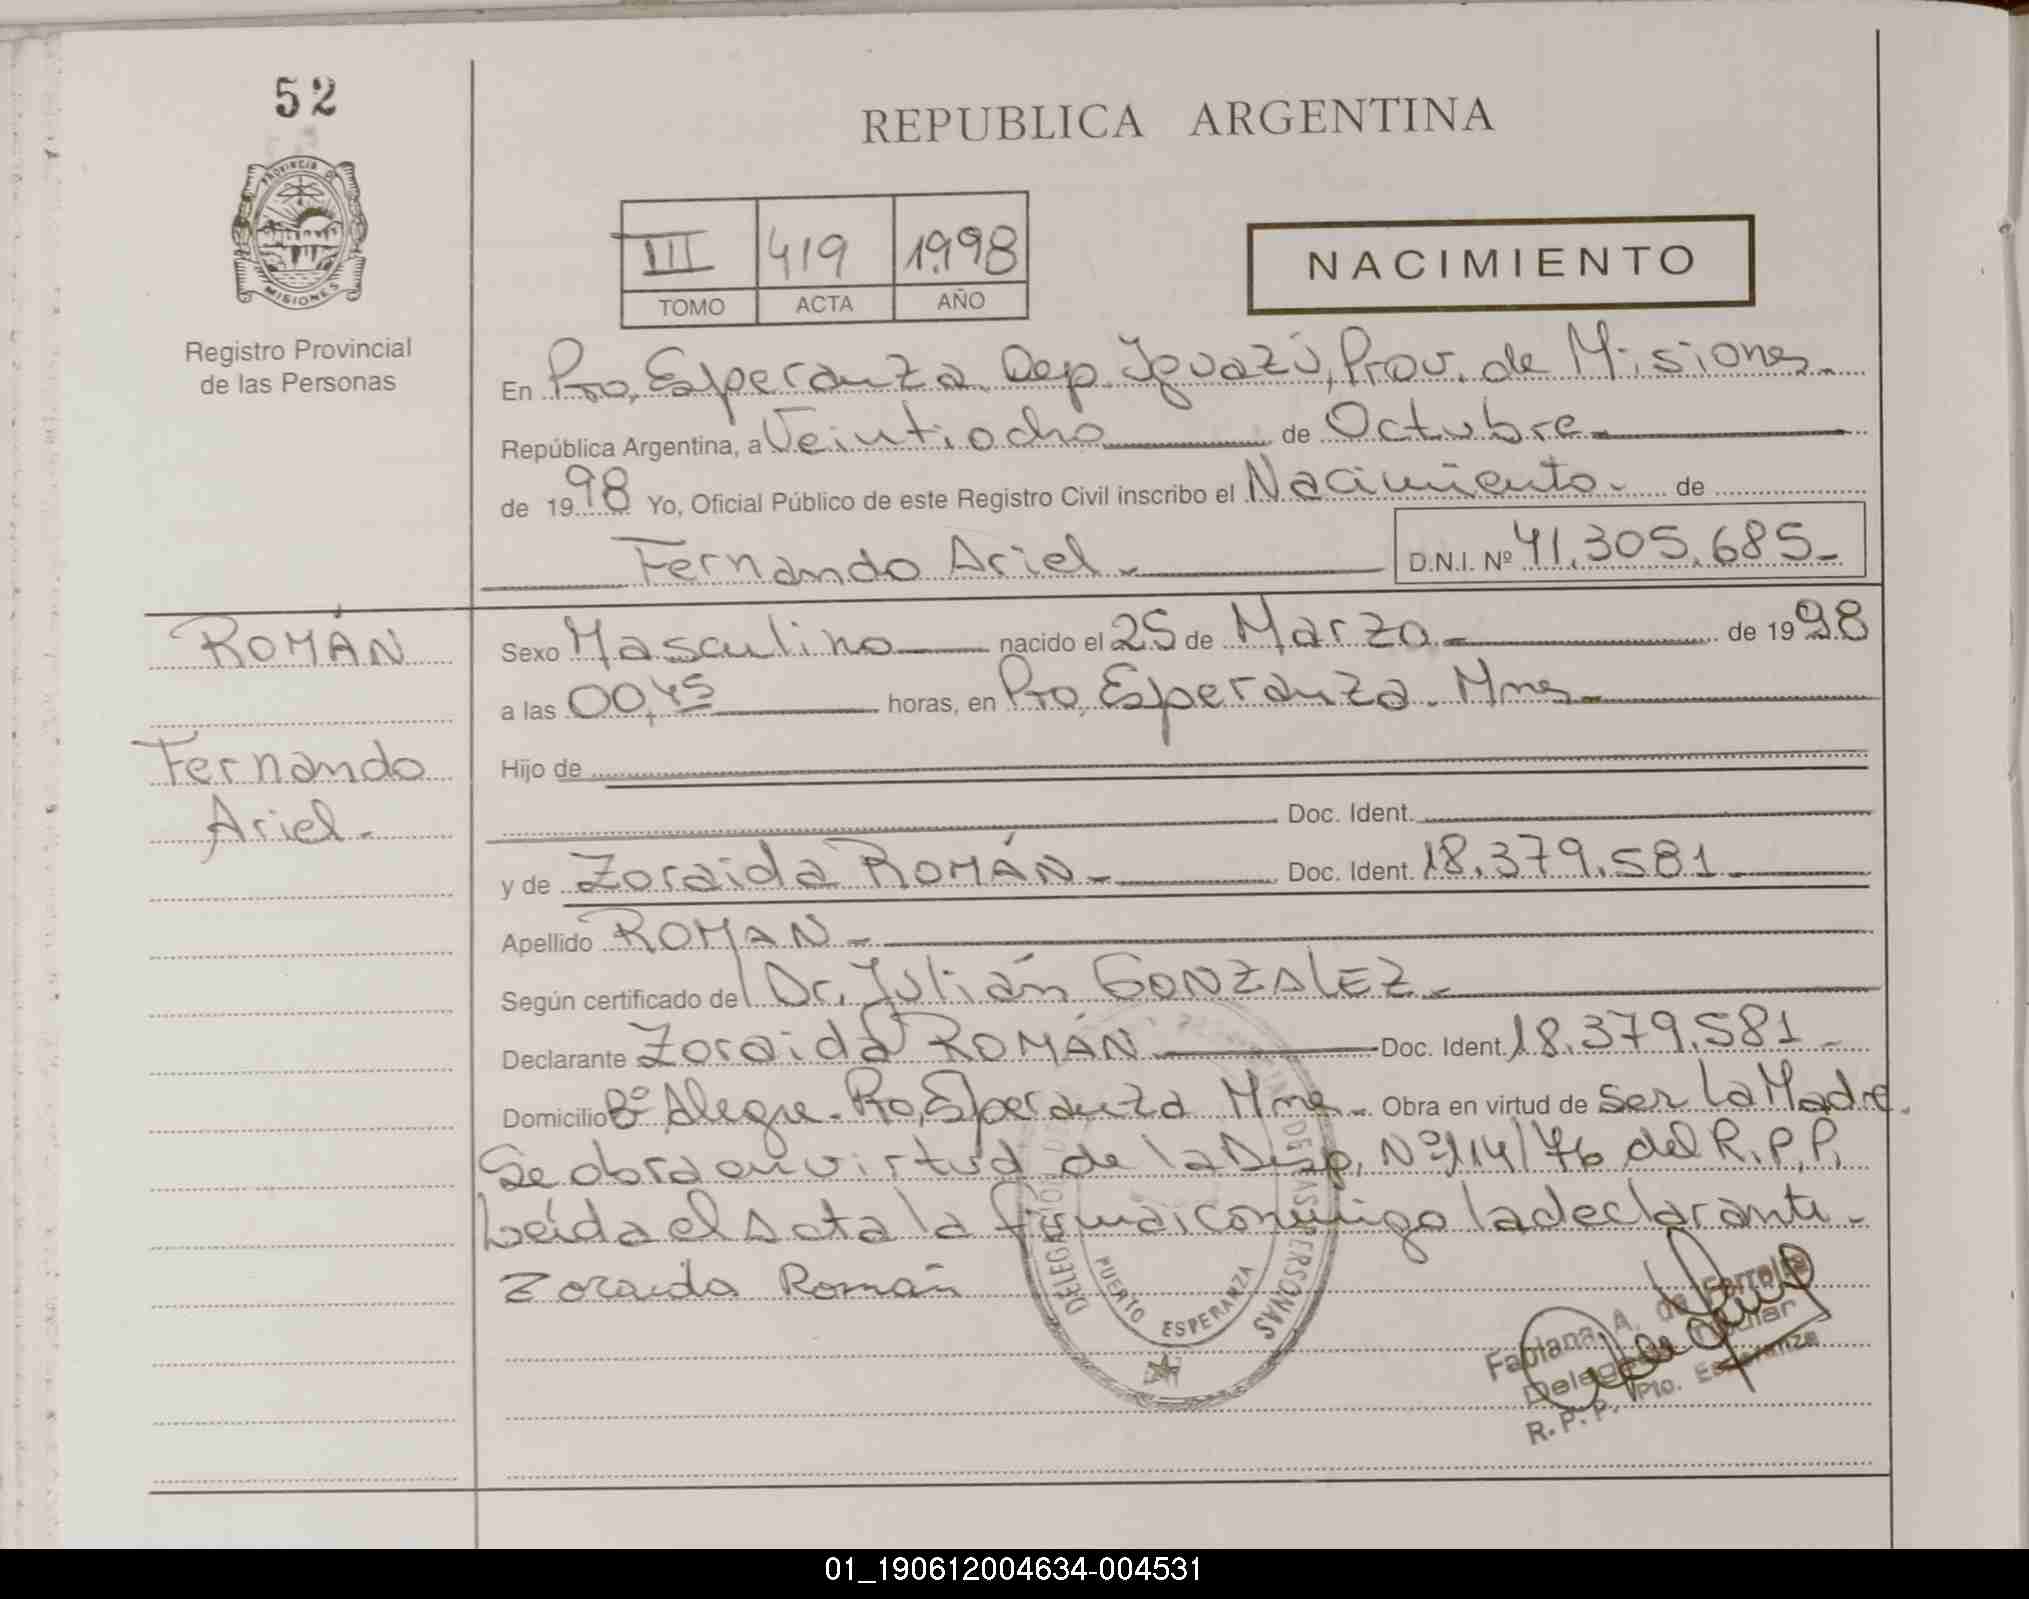 52
PROVINCIA DE
MISIONES
Registro Provincial
de las Personas
REPUBLICA ARGENTINA
III 419 1998
TOMO ACTA AÑO
NACIMIENTO
En Pto, Esperanza. Dep. Iguazú, Prov. de Misiones.
República Argentina, a Veintiocho de Octubre
de 1998 Yo, Oficial Público de este Registro Civil inscribo el Nacimiento. de
Fernando Ariel. D.N.I. Nº 41.305.685
ROMÁN
Fernando
Ariel.
Sexo Masculino nacido el 25 de Marzo de 1998
a las 00,45 horas, en Pto, Esperanza. Mnes
Hijo de
Doc. Ident.
y de Zoraida ROMÁN Doc. Ident. 18.379.581
Apellido ROMAN
Según certificado del Dr. Julián GONZALEZ
Declarante Zoraida ROMÁN Doc. Ident. 18.379.581
Domicilio Bº Alegre. Pto, Esperanza Mnes. Obra en virtud de Ser La Madre.
Se obra en virtud de la Disp. Nº 114/76 del R.P.P.
Leída el Acta la firma conmigo la declarante.
Zoraida Román
DELEGACION
DE LAS PERSONAS
PUERTO ESPERANZA
Fabiana A. de
Delegada Titular
R.P.P. Pto. Esperanza
01_190612004634-004531